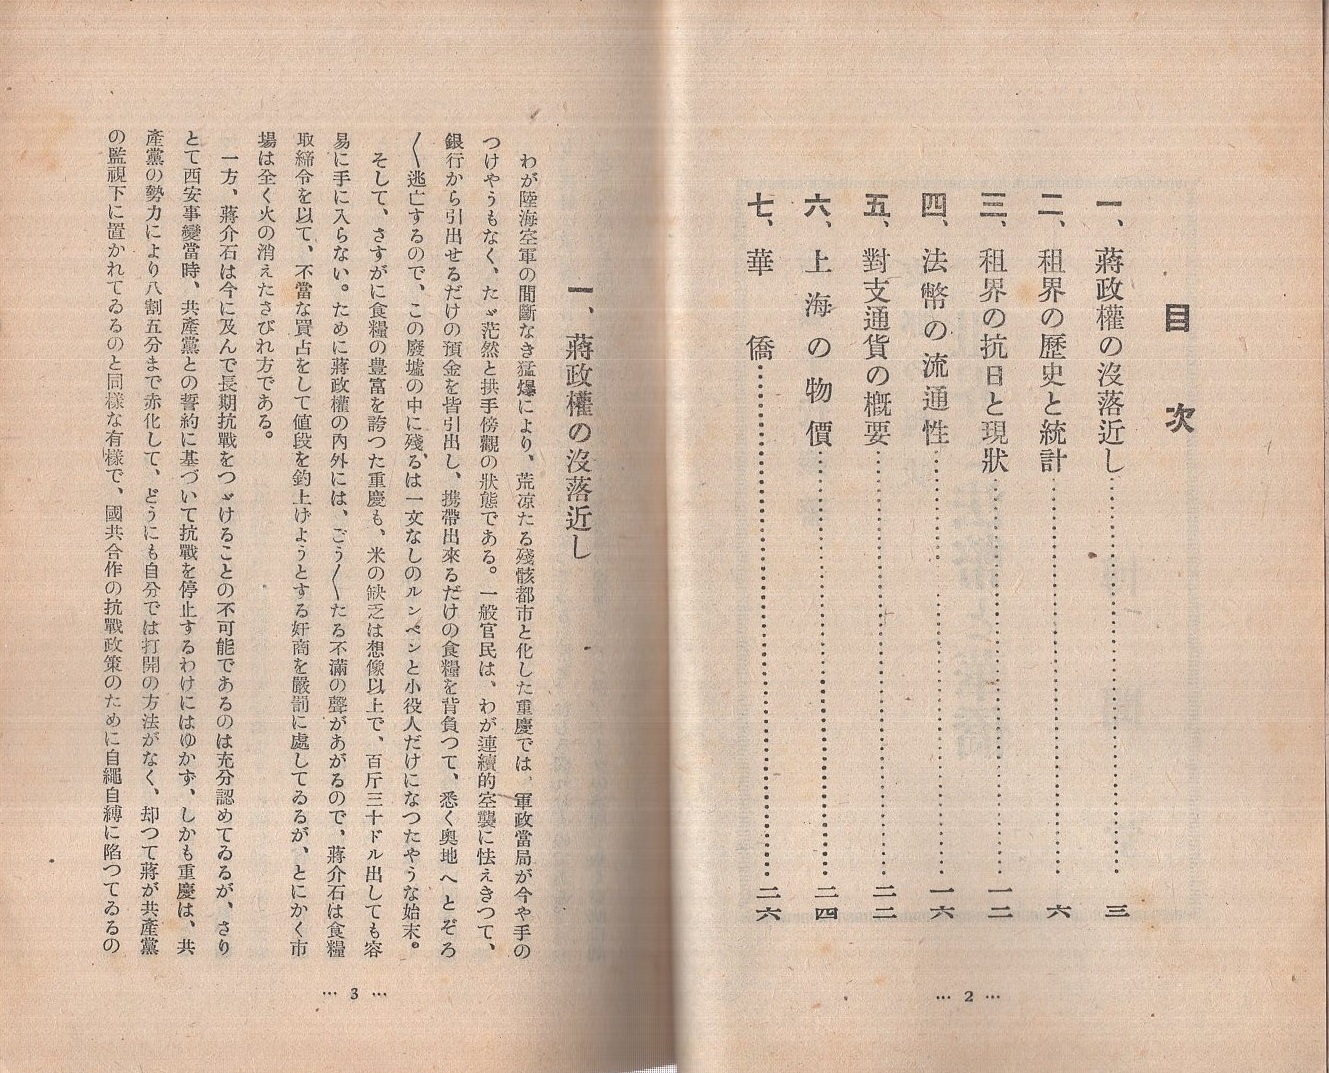 目次
一、蔣政權の沒落近し…………三
二、租界の歷史と統計…………六
三、租界の抗日と現狀…………一二
四、法幣の流通性…………一六
五、對支通貨の槪要…………二二
六、上海の物價…………二四
七、華僑…………二六
… 2 …
一、蔣政權の沒落近し
わが陸海空軍の間斷なき猛爆により、荒凉たる殘骸都市と化した重慶では、軍政當局が今や手の
つけやうもなく、たゞ茫然と拱手傍觀の狀態である。一般官民は、わが連續的空襲に怯えきつて、
銀行から引出せるだけの預金を皆引出し、携帶出來るだけの食糧を背負つて、悉く奧地へとぞろ
〱逃亡するので、この廢墟の中に殘るは一文なしのルンペンと小役人だけになつたやうな始末。
そして、さすがに食糧の豊富を誇つた重慶も、米の缺乏は想像以上で、百斤三十ドル出しても容
易に手に入らない。ために蔣政權の內外には、ごう〱たる不滿の聲があがるので、蔣介石は食糧
取締令を以て、不當な買占をして値段を釣上げようとする奸商を嚴罰に處してゐるが、とにかく市
場は全く火の消えたさびれ方である。
一方、蔣介石は今に及んで長期抗戰をつゞけることの不可能であるのは充分認めてゐるが、さり
とて西安事變當時、共產黨との誓約に基づいて抗戰を停止するわけにはゆかず、しかも重慶は、共
產黨の勢力により八割五分まで赤化して、どうにも自分では打開の方法がなく、却つて蔣が共產黨
の監視下に置かれてゐるのと同樣な有樣で、國共合作の抗戰政策のために自繩自縛に陷つてゐるの
… 3 …